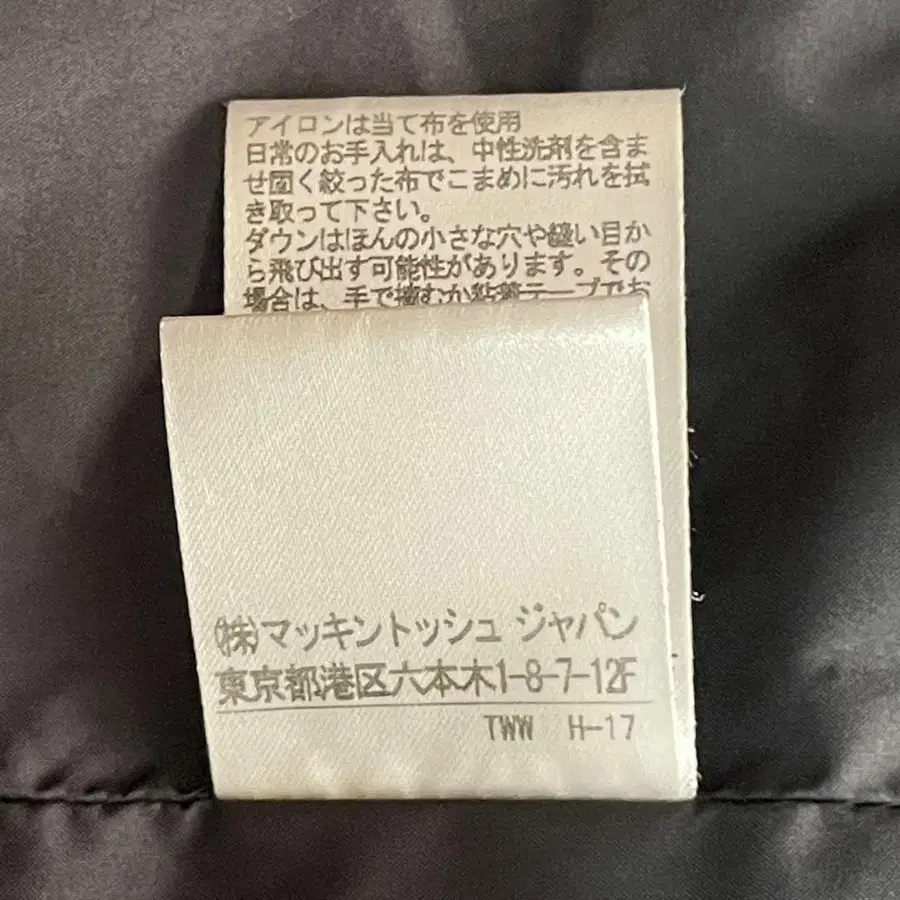 アイロンは当て布を使用
日常のお手入れは、中性洗剤を含ま
せ固く絞った布でこまめに汚れを拭
き取って下さい。
ダウンはほんの小さな穴や縫い目か
ら飛び出す可能性があります。その
場合は、手で摘むか粘着テープでお
(株)マッキントッシュ ジャパン
東京都港区六本木1-8-7-12F
TWW H-17